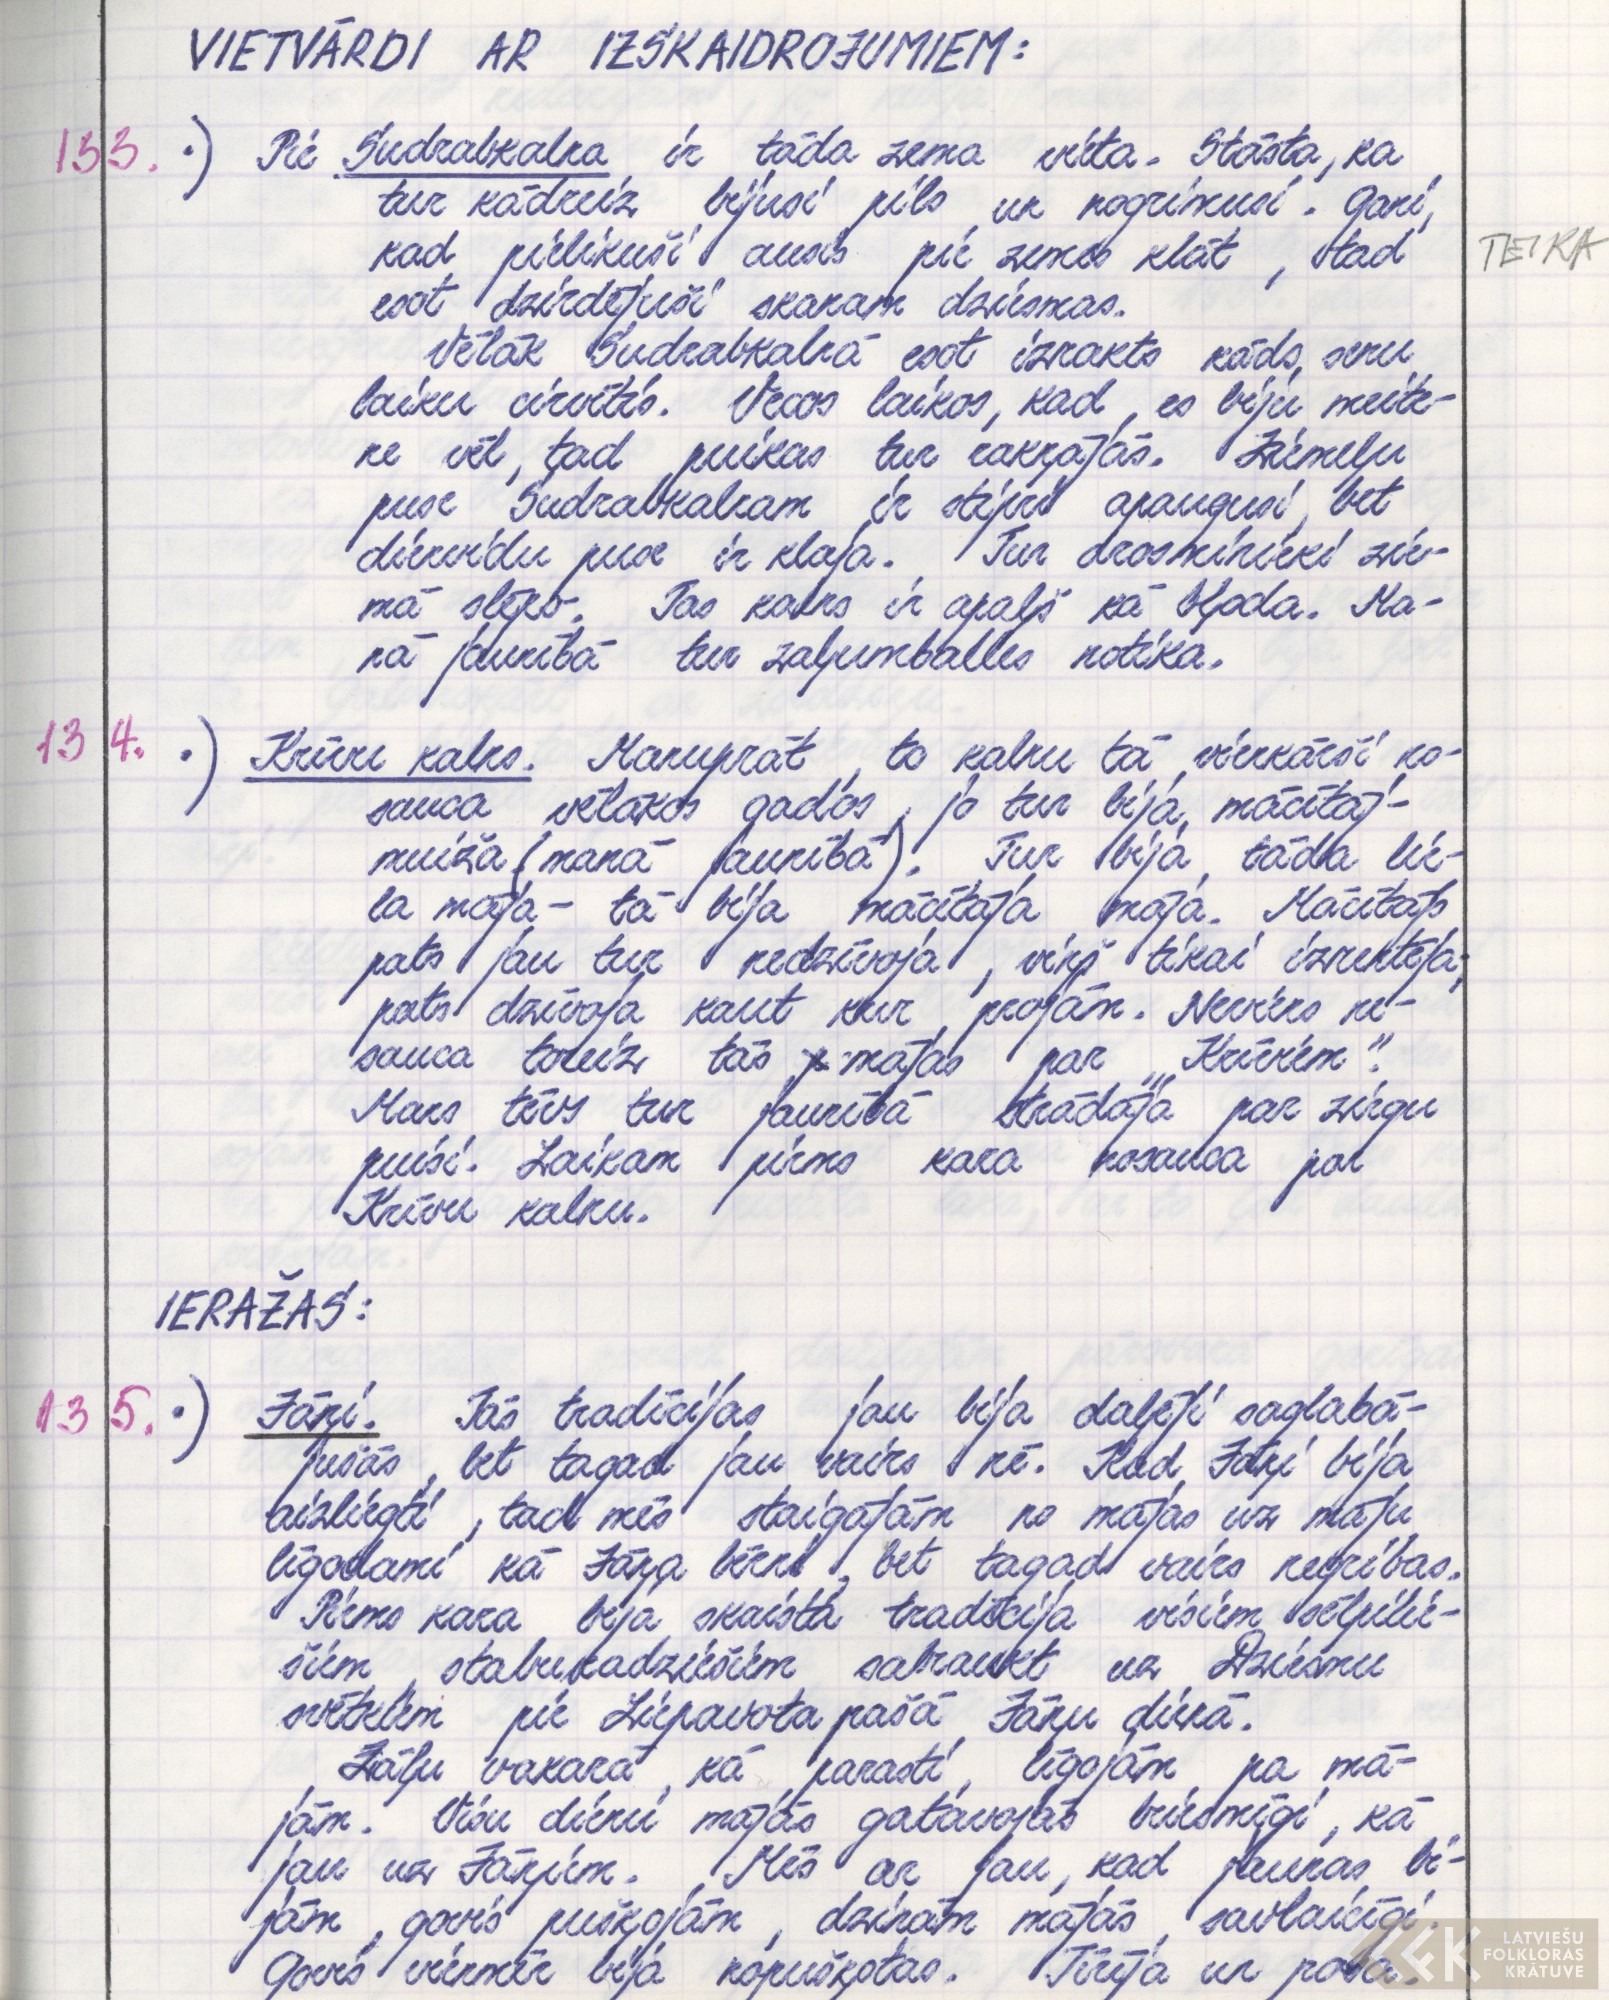 VIETVĀRDI AR IZSKAIDROJUMIEM:
133. •) Pie Sudrabkalna ir tāda zema vieta. Stāsta, ka
tur kādreiz bijusi pils un nogrimusi. Gani,
kad pielikuši ausis pie zemes klāt, tad
TEIKA
esot dzirdējuši skanam dziesmas.
Vēlāk Sudrabkalnā esot izrakts kāds senu
laiku cirvītis. Vecos laikos, kad es biju meite-
ne vēl, tad puikas tur rakņājās. Ziemeļu
puse Sudrabkalnam ir stipri apaugusi, bet
dienvidu puse ir klaja. Tur drosminieki zie-
mā slēpo. Tas kalns ir apaļš kā bļoda. Ma-
nā jaunībā tur zaļumballes notika.
134. •) Krīvu kalns. Manuprāt, to kalnu tā vienkārši no-
sauca vēlākos gados, jo tur bija mācītāj-
muiža (manā jaunībā). Tur bija tāda lie-
la māja - tā bija mācītāja māja. Mācītājs
pats jau tur nedzīvoja, viņš tikai izrentēja,
pats dzīvoja kaut kur projām. Neviens ne-
sauca toreiz tās mājas par „Krīviem".
Mans tēvs tur jaunībā strādāja par zirgu
puisi. Laikam pirms kara nosauca par
Krīvu kalnu.
IERAŽAS:
135. •) Jāņi. Tās tradīcijas jau bija daļēji saglabā-
jušās, bet tagad jau vairs nē. Kad Jāņi bija
aizliegti, tad mēs staigājām no mājas uz māju
līgodami kā Jāņa bērni, bet tagad vairs negribas.
Pirms kara bija skaista tradīcija visiem sēlpilie-
šiem, staburadziešiem sabraukt uz Dziesmu
svētkiem pie Liepavota pašā Jāņu dienā.
Zāļu vakarā, kā parasti, līgojām pa mā-
jām. Visu dienu mājās gatavojās briesmīgi, kā
jau uz Jāņiem. Mēs ar jau, kad jaunas bi-
jām, govis puškojām, dzinām mājās savlaicīgi.
Govis vienmēr bija nopuškotas. Tīrīja un posa.
LATVIEŠU
FOLKLORAS
KRĀTUVE